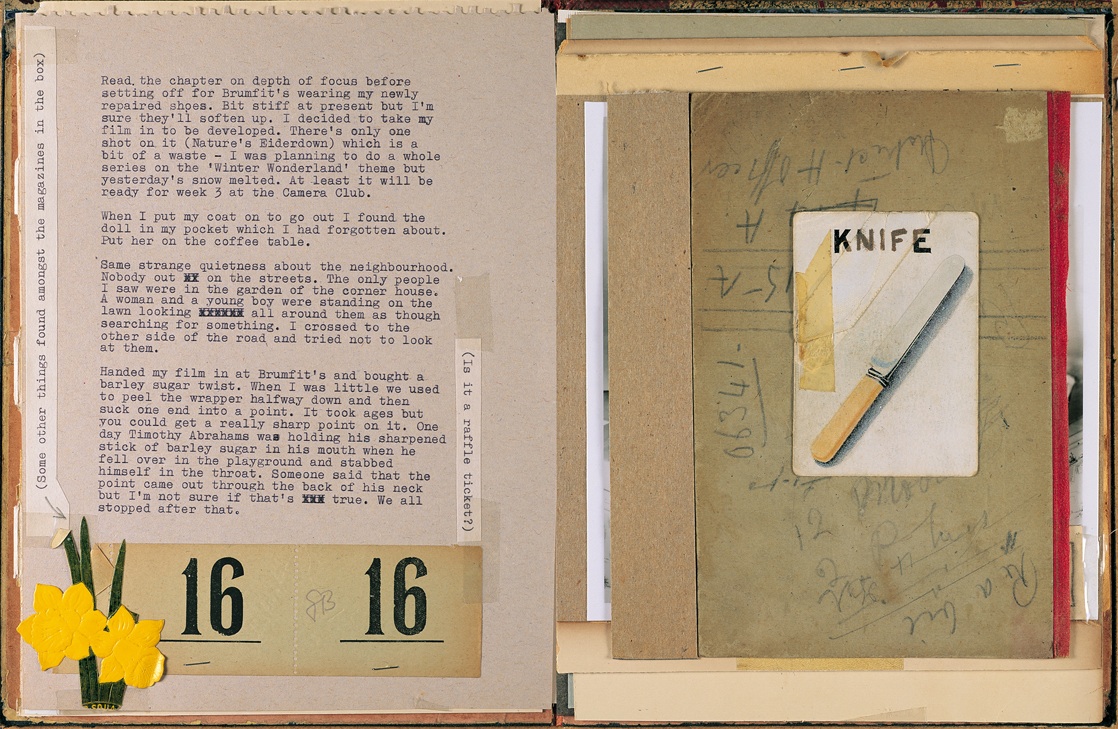 (Some other things found amongst the magazines in the box)
Read the chapter on depth of focus before
setting off for Brumfit's wearing my newly
repaired shoes. Bit stiff at present but I'm
sure they'll soften up. I decided to take my
film in to be developed. There's only one
shot on it (Nature's Eiderdown) which is a
bit of a waste - I was planning to do a whole
series on the 'Winter Wonderland' theme but
yesterday's snow melted. At least it will be
ready for week 3 at the Camera Club.
When I put my coat on to go out I found the
doll in my pocket which I had forgotten about.
Put her on the coffee table.
Same strange quietness about the neighbourhood.
Nobody out xx on the streets. The only people
I saw were in the garden of the corner house.
A woman and a young boy were standing on the
lawn looking xxxxxx all around them as though
searching for something. I crossed to the
other side of the road and tried not to look
at them.
Handed my film in at Brumfit's and bought a
barley sugar twist. When I was little we used
to peel the wrapper halfway down and then
suck one end into a point. It took ages but
you could get a really sharp point on it. One
day Timothy Abrahams was holding his sharpened
stick of barley sugar in his mouth when he
fell over in the playground and stabbed
himself in the throat. Someone said that the
point came out through the back of his neck
but I'm not sure if that's xxx true. We all
stopped after that.
(Is it a raffle ticket?)
16 JB 16
KNIFE